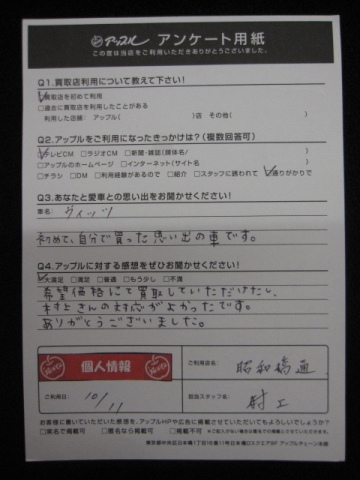 アップル アンケート用紙
この度は当店をご利用いただきありがとうございました。
Q1.買取店利用について教えて下さい!
買取店を初めて利用
□過去に買取店を利用したことがある
利用した店舗： アップル( )店 その他( )
Q2.アップルをご利用になったきっかけは?(複数回答可)
テレビCM □ラジオCM □新聞・雑誌(媒体名/ )
□アップルのホームページ □インターネット(サイト名 )
□チラシ □DM □利用経験があるので □紹介 □スタッフに誘われて 通りがかりで
Q3.あなたと愛車との思い出をお聞かせください!
車名： ヴィッツ
初めて、自分で買った思い出の車です。
Q4.アップルに対する感想をぜひお聞かせください!
大満足 □満足 □普通 □もう少し □不満
希望価格にて買取していただけたし、
村上さんの対応がよかったです。
ありがとうございました。
個人情報
ご利用店名： 昭和橋通
ご利用日： 10/11
担当スタッフ名： 村上
お客様に書いていただいた感想を、アップルHPや広告に掲載させていただいてもよろしいでしょうか?
□実名で掲載可 □匿名なら掲載可 □掲載不可
東京都中央区日本橋1丁目10番11号日本橋口スクエア8F アップルチェーン本部